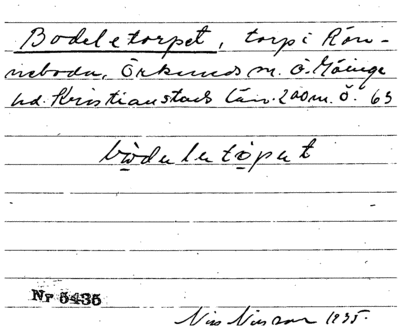 Bodeletorpet, torp i Rön-
neboda, Örkeneds sn. Ö. Göinge
hd. Kristianstads län. 200 m. Ö. 63
bodeletopet
Nr 5435
Nils Nilsson 1935.